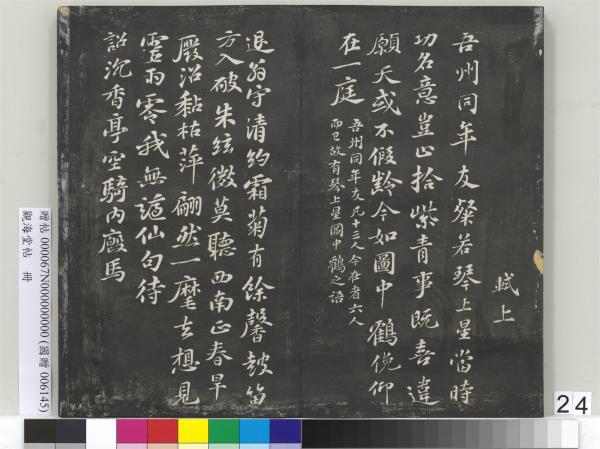 軾上
吾州同年友粲若琴上星當時
功名意豈止拾紫青事既喜違
願天或不假齡今如圖中鶴俛仰
在一庭吾州同年友凡十三人今在者六人
而已故有琴上星圖中鶴之語
退翁守清約霜菊有餘馨鼓笛
方入破朱絃微莫聽西南正春旱
廢沼黏枯萍翩然一麾去想見
靈雨零我無謫仙句待
詔沉香亭空騎內廄馬
贈帖 000067N000000000 (國贈 006145)
觀海堂帖 冊
24